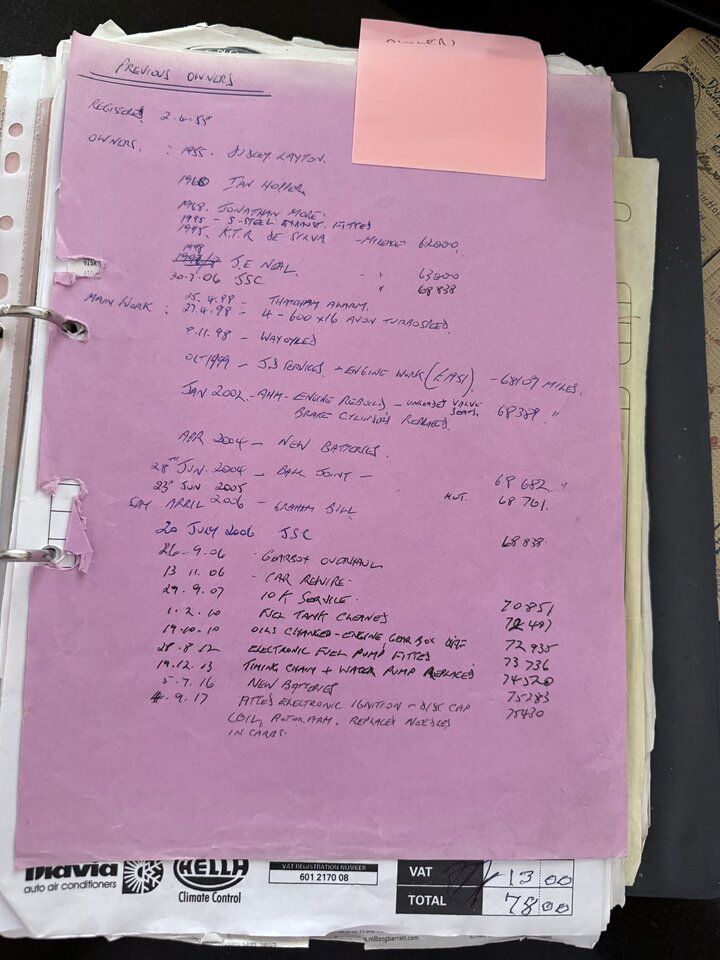 OWNERS
PREVIOUS OWNERS
REGISTERED 2.4.55
OWNERS. : 1955. DUDLEY LAYTON.
1960 IAN HOPPER
1968. JONATHAN MORE.
1995 - S-STEEL EXHAUST FITTED
1995. K.T.R DE SILVA - MILEAGE 62000
1998
J.E NEAL " 63000
20.7.06 JSC " 68838
MAIN WORK : 25.4.98 - THATCHAM ALARM.
27.4.98 - 4 - 600 x 16 AVON TURBOSPEED
9.11.98 - WAXOYLED
OCT 1999 - JS SERVICES + ENGINE WORK (£1951) - 68109 MILES.
JAN 2002 - AHM - ENGINE REBUILD - UNLEADED VALVE SEATS. 68389. "
BRAKE CYLINDERS REPLACED.
APR 2004 - NEW BATTERIES.
28TH JUN. 2004 - BALL JOINT - 68 682. "
23RD JUN 2005 MOT. 68 761.
APRIL 2006 - GRAHAM BULL
20 JULY 2006 JSC 68 838.
26-9.06 GEARBOX OVERHAUL
13 11.06 - CAR REWIRE-
29.9.07 10K SERVICE. 70851
1.2.10 FUEL TANK CLEANED 72 497
19.10.10 OILS CHANGED - ENGINE GEAR BOX DIFF 72 935
28.8 12 ELECTRONIC FUEL PUMP FITTED 73 736
19.12.13 TIMING CHAIN + WATER PUMP REPLACED 74520
5.7.16 NEW BATTERIES 75283
4.9.17 FITTED ELECTRONIC IGNITION - DISC CAP 75430
COIL, ROTOR ARM. REPLACED NEEDLES
IN CARBS.
Diavia
auto air conditioners
HELLA
Climate Control
VAT REGISTRATION NUMBER
601 2170 08
VAT 13 00
TOTAL 78 00